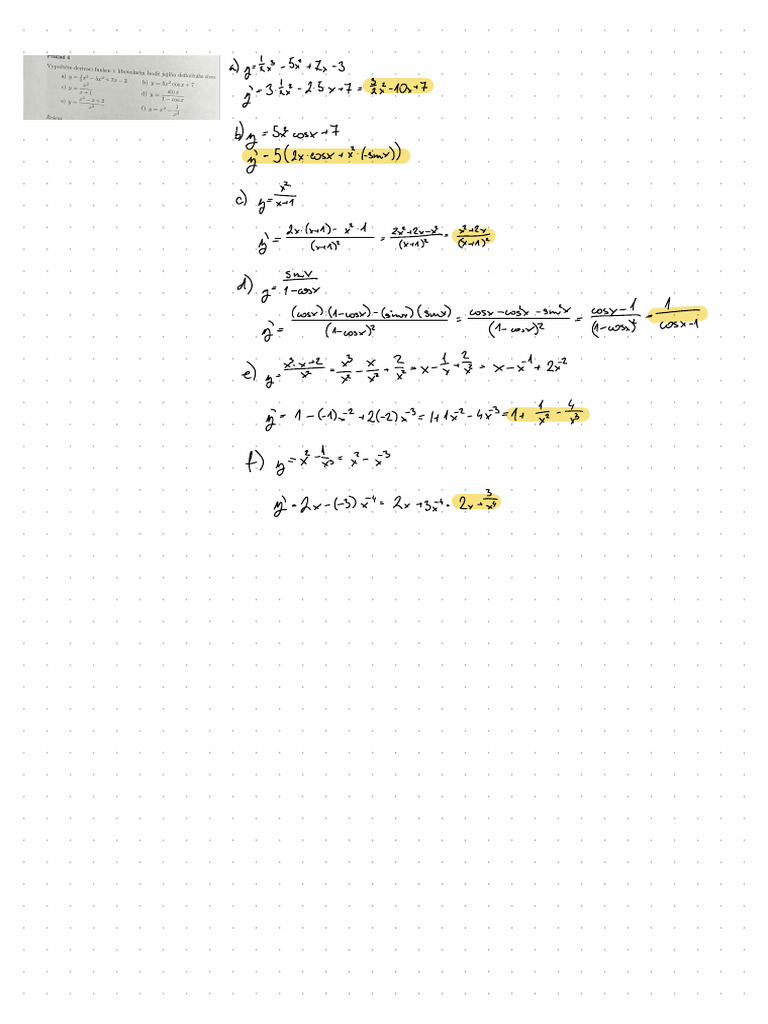 Příklad 4
Vypočtěte derivaci funkce v libovolném bodě jejího definičního oboru
a) y = ½x³ − 5x² + 7x − 3 b) y = 5x² cos x + 7
c) y = x²/(x+1) d) y = sin x/(1 − cos x)
e) y = (x³ − x + 2)/x² f) y = x² − 1/x³
Řešení
a) y = ½x³ − 5x² + 7x − 3
y' = 3·½x² − 2·5x + 7 = 3/2x² − 10x + 7
b) y = 5x² cosx + 7
y' = 5(2x·cosx + x²·(−sinx))
c) y = x²/(x+1)
y' = (2x·(x+1) − x²·1)/(x+1)² = (2x²+2x−x²)/(x+1)² = (x²+2x)/(x+1)²
d) y = sinx/(1−cosx)
y' = ((cosx)·(1−cosx)−(sinx)(sinx))/(1−cosx)² = (cosx−cos²x−sin²x)/(1−cosx)² = (cosx−1)/(1−cosx)² = 1/(cosx−1)
e) y = (x³-x+2)/x² = x³/x² − x/x² + 2/x² = x − 1/x + 2/x² = x − x⁻¹ + 2x⁻²
y' = 1 − (−1)x⁻² + 2(−2)x⁻³ = 1+1x⁻² − 4x⁻³ = 1 + 1/x² − 4/x³
f) y = x² − 1/x³ = x² − x⁻³
y' = 2x − (−3)x⁻⁴ = 2x + 3x⁻⁴ = 2x + 3/x⁴